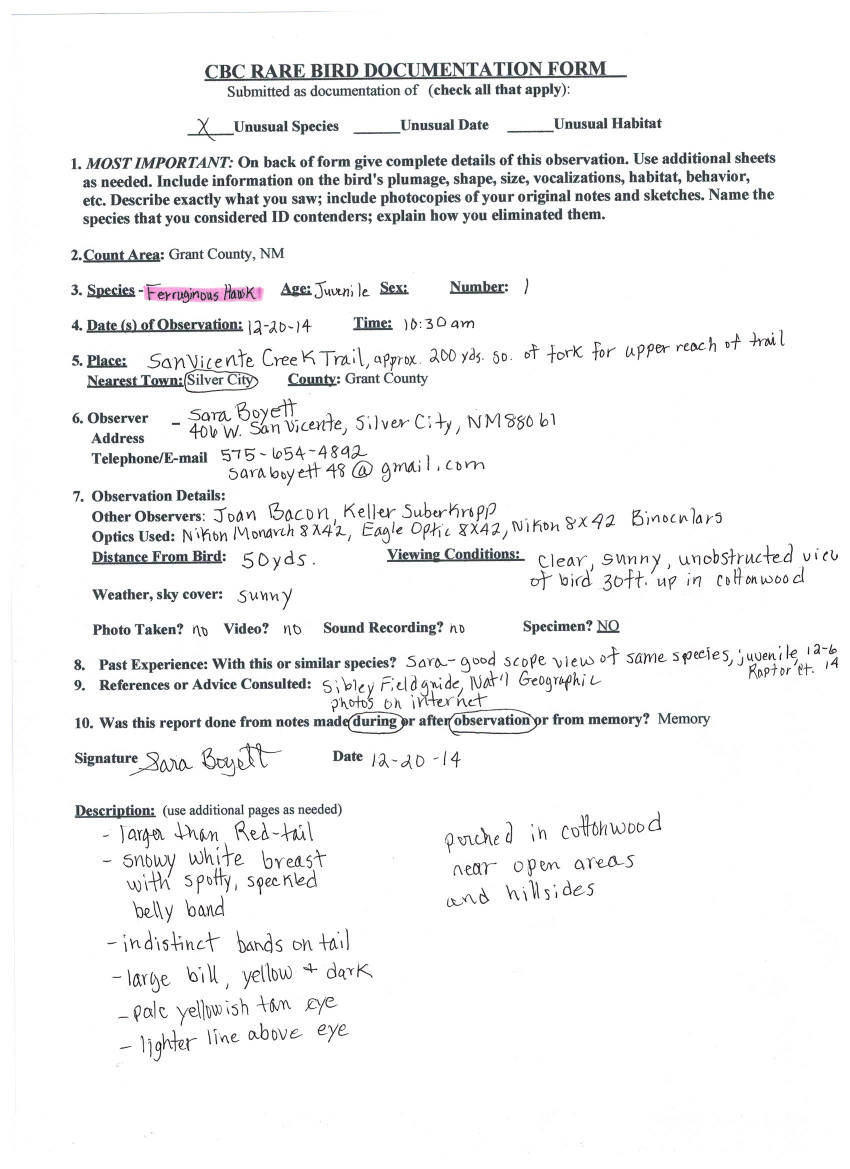 CBC RARE BIRD DOCUMENTATION FORM
Submitted as documentation of (check all that apply):
X Unusual Species ______Unusual Date ______Unusual Habitat
1. MOST IMPORTANT: On back of form give complete details of this observation. Use additional sheets
as needed. Include information on the bird's plumage, shape, size, vocalizations, habitat, behavior,
etc. Describe exactly what you saw; include photocopies of your original notes and sketches. Name the
species that you considered ID contenders; explain how you eliminated them.
2.Count Area: Grant County, NM
3. Species - Ferruginous Hawk Age: Juvenile Sex: Number: 1
4. Date (s) of Observation: 12-20-14 Time: 10:30 am
5. Place: San Vicente Creek Trail, approx. 200 yds. so. of fork for upper reach of trail
Nearest Town: Silver City County: Grant County
6. Observer - Sara Boyett
Address 406 W. San Vicente, Silver City, NM 88061
Telephone/E-mail 575-654-4892
saraboyett48@gmail.com
7. Observation Details:
Other Observers: Joan Bacon, Keller Suberkropp
Optics Used: Nikon Monarch 8X42, Eagle Optic 8X42, Nikon 8X42 Binoculars
Distance From Bird: 50yds. Viewing Conditions: Clear, sunny, unobstructed view
of bird 30ft. up in cottonwood
Weather, sky cover: sunny
Photo Taken? no Video? no Sound Recording? no Specimen? NO
8. Past Experience: With this or similar species? Sara - good scope view of same species, juvenile, 12-6
Raptor ct. 14
9. References or Advice Consulted: Sibley Fieldguide, Nat'l Geographic
photos on internet
10. Was this report done from notes made during or after observation or from memory? Memory
Signature Sara Boyett Date 12-20-14
Description: (use additional pages as needed)
- larger than Red-tail
- snowy white breast
with spotty, speckled
belly band
- indistinct bands on tail
- large bill, yellow + dark
- pale yellowish tan eye
- lighter line above eye
perched in cottonwood
near open areas
and hillsides